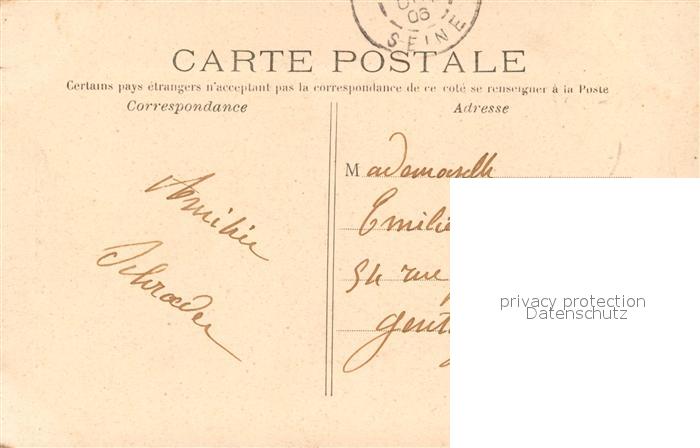 06
SEINE
CARTE POSTALE
Certains pays étrangers n'acceptant pas la correspondance de ce coté se renseigner à la Poste
Correspondance
Adresse
Schroeder
Mademoiselle
Emilie
54 rue
privacy protection
Datenschutz